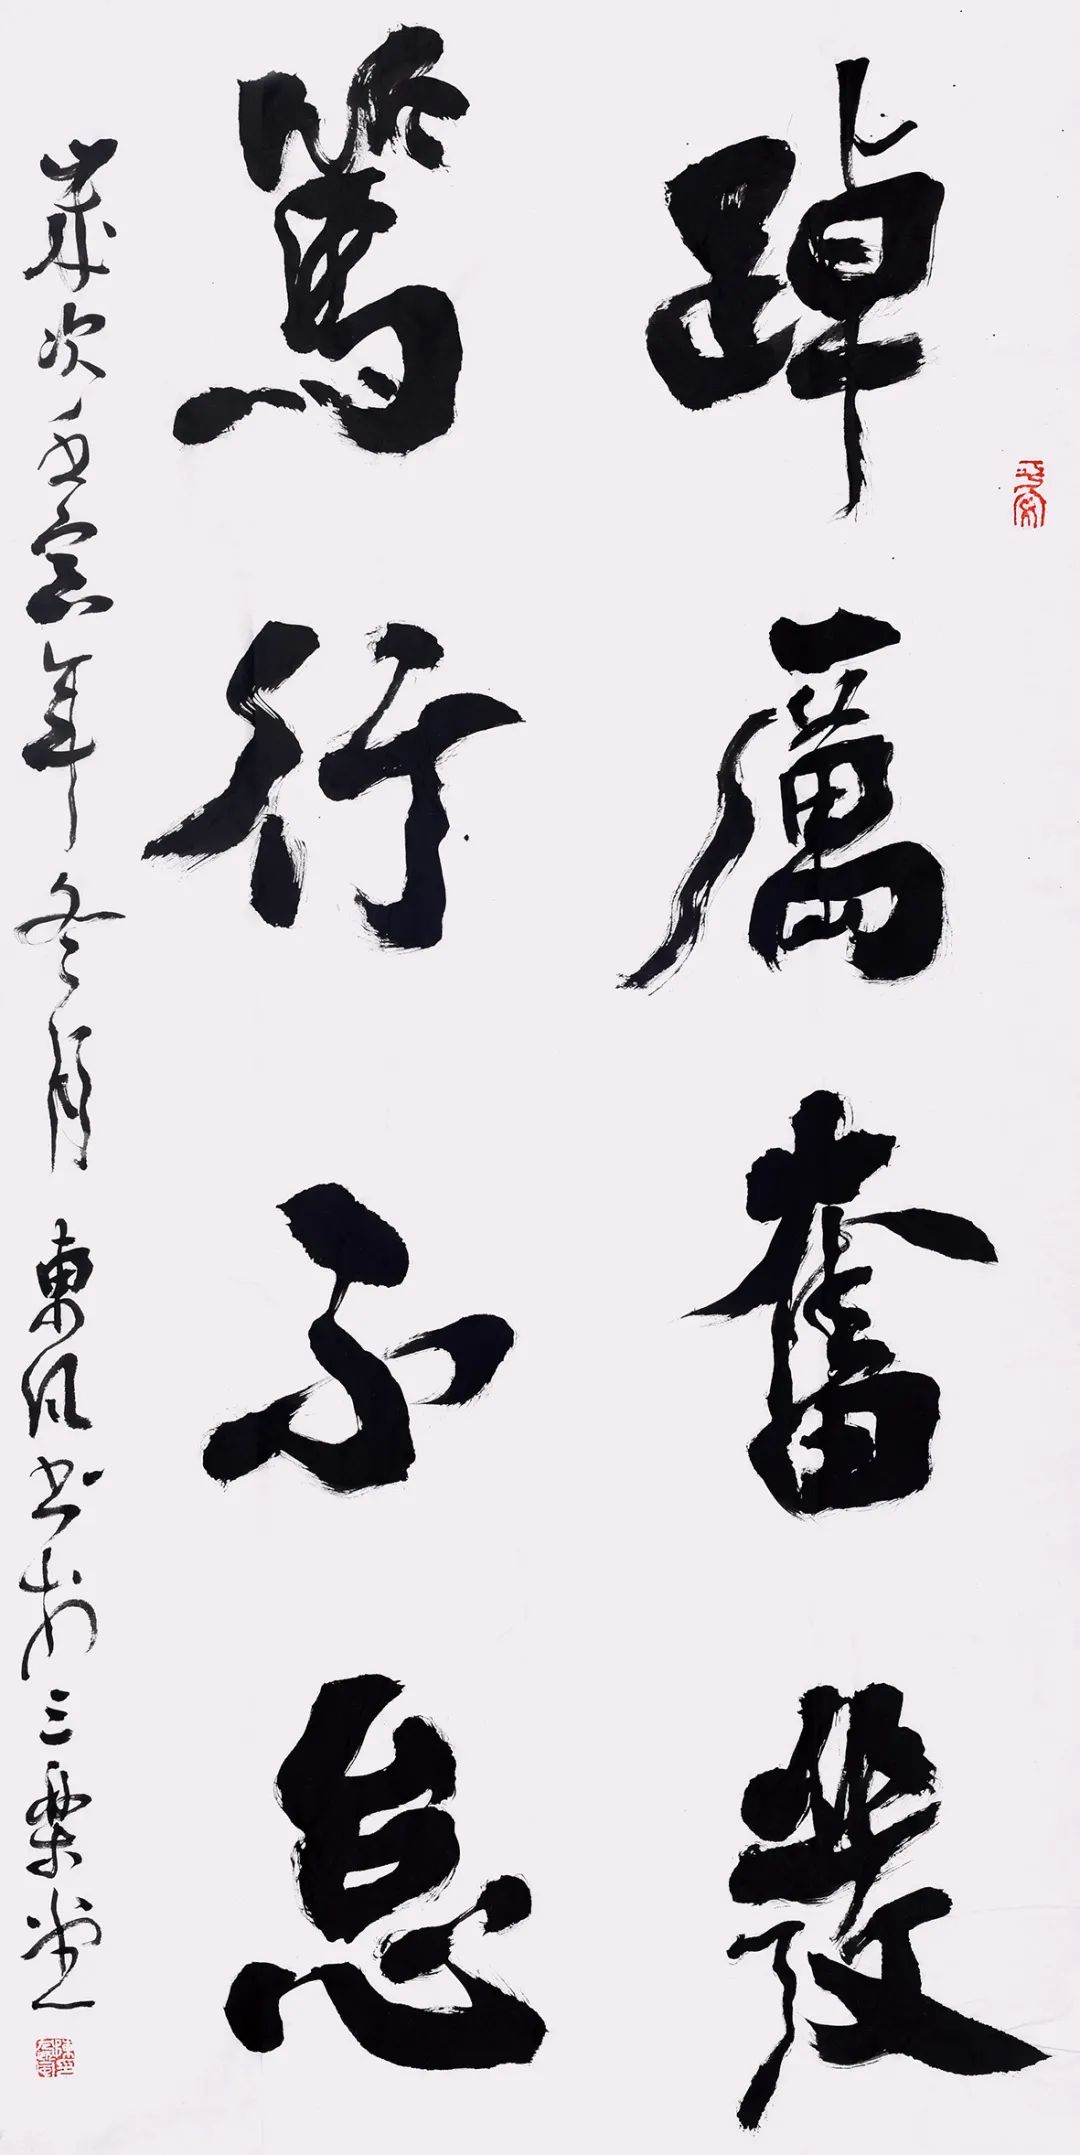 踔厲奮發
篤行不怠
歲次壬寅年冬月 東風書於三樂堂